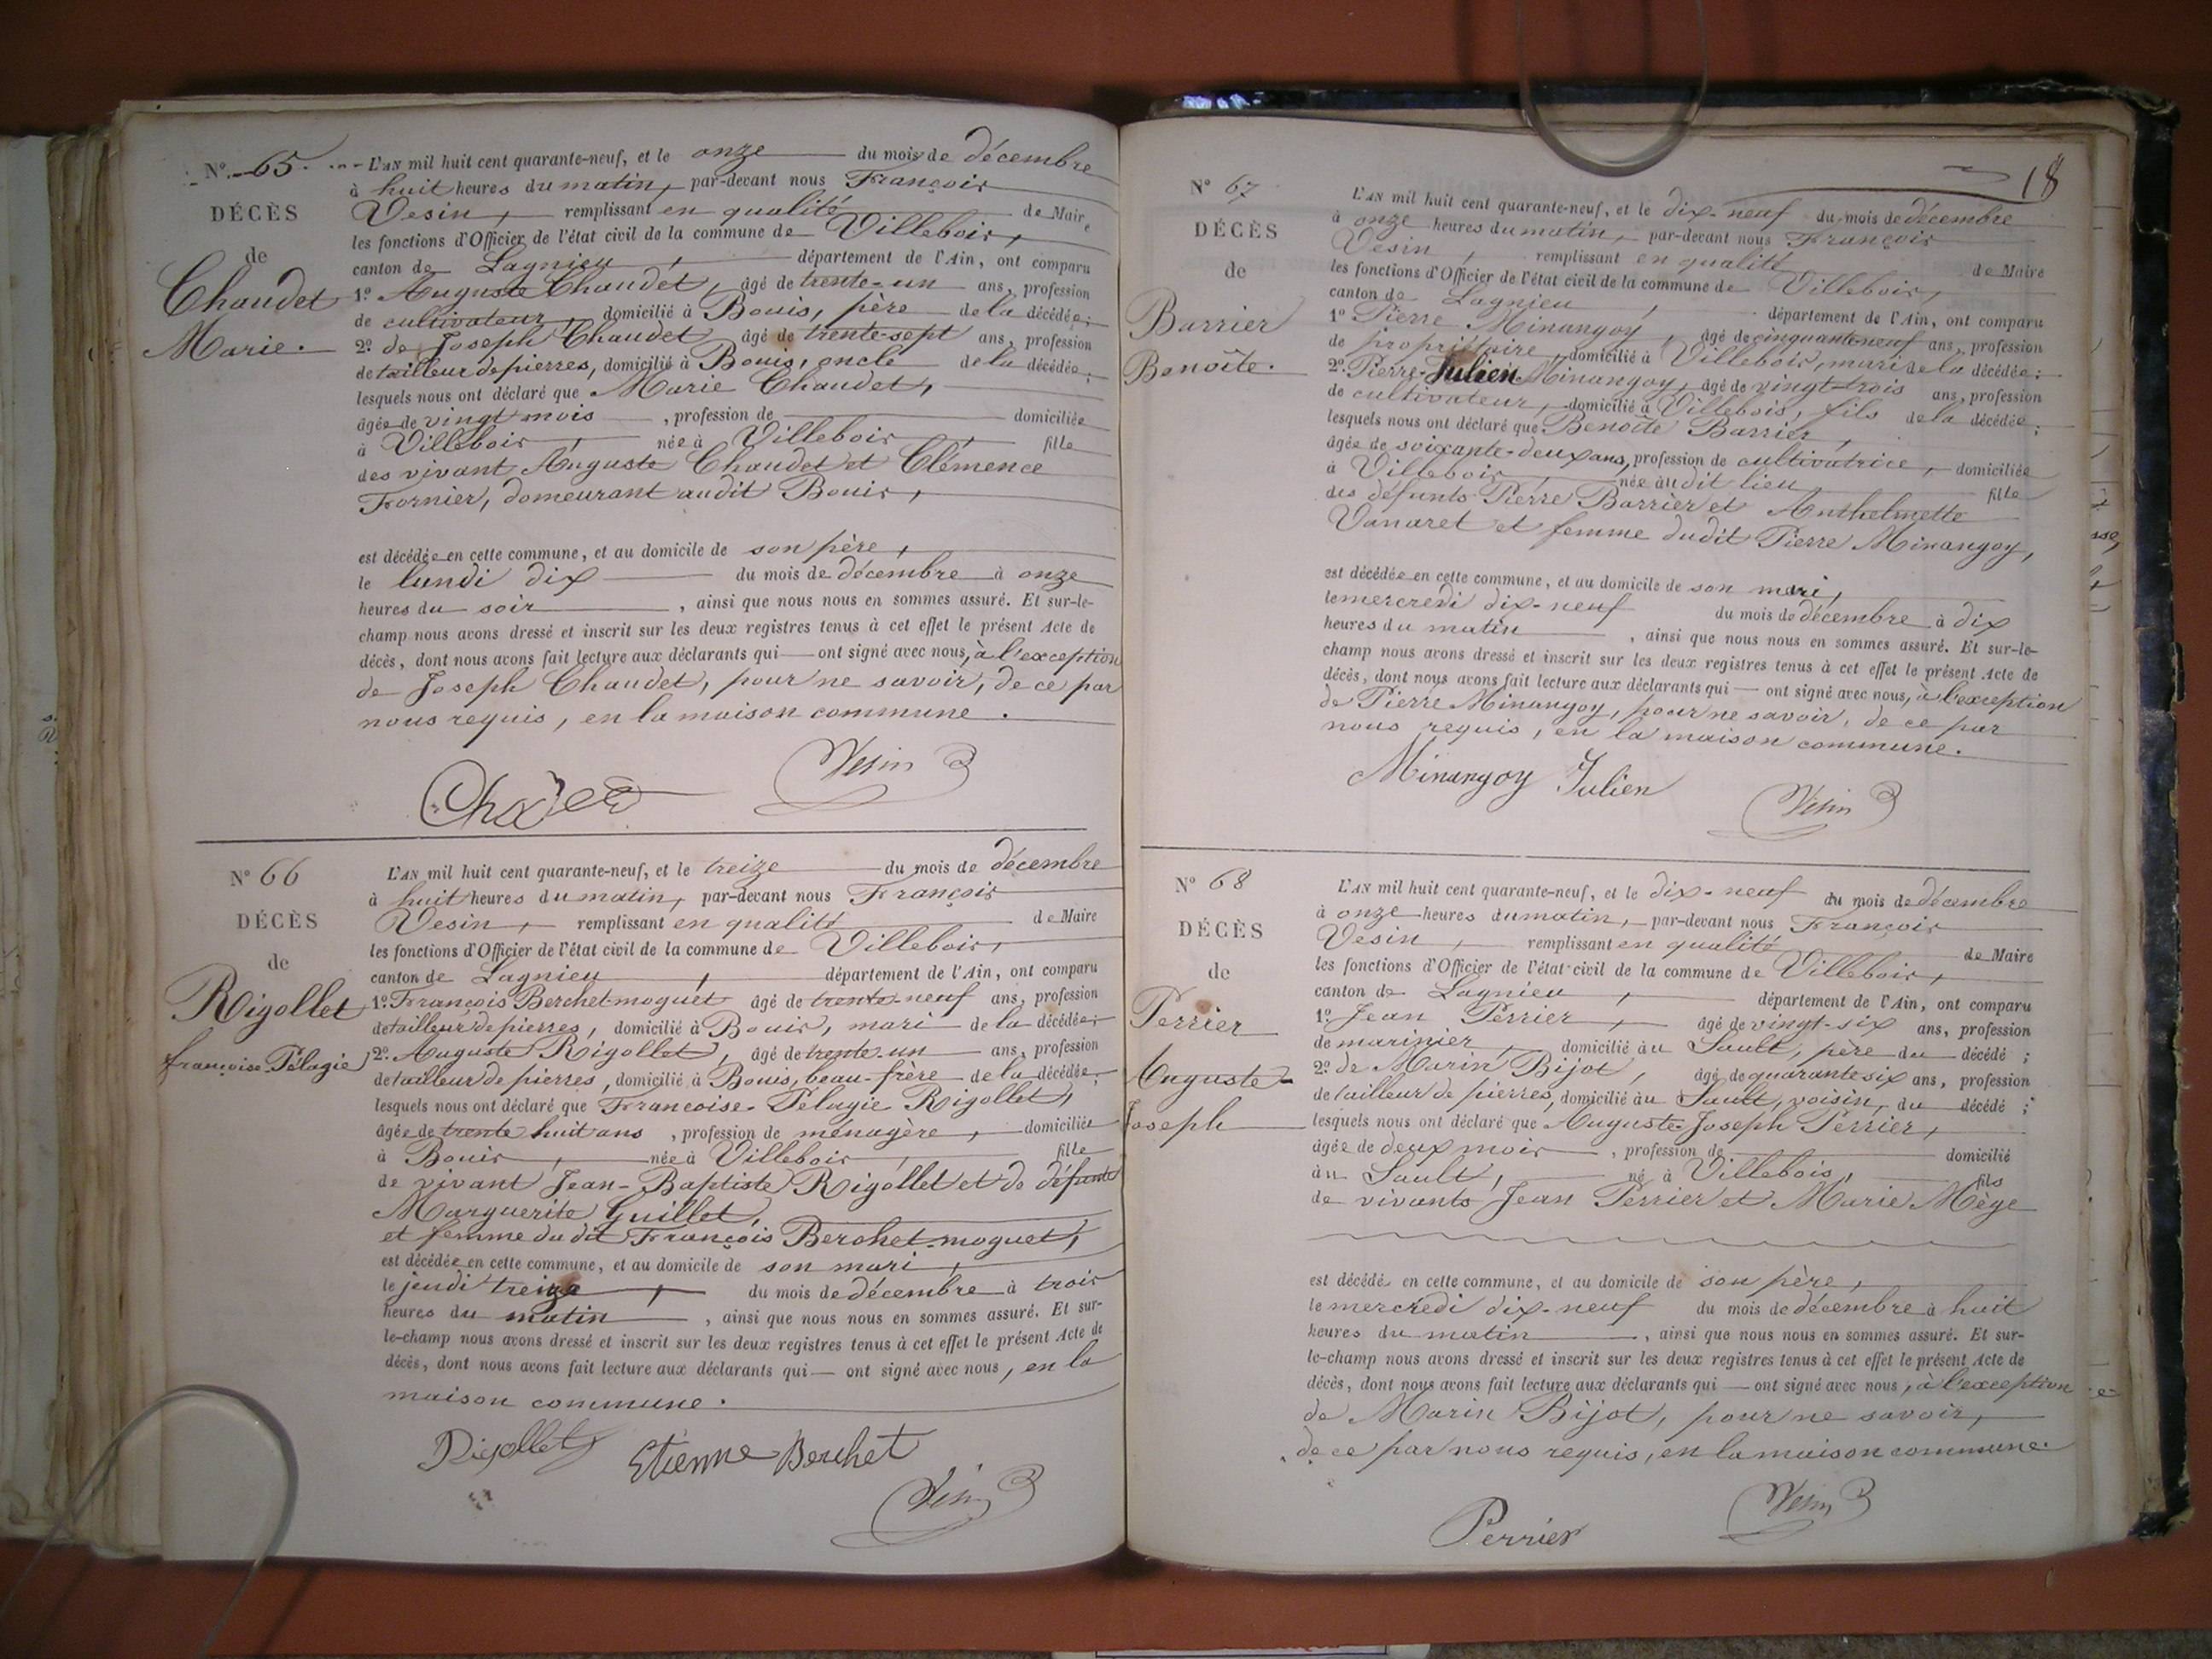 N° 65.
DÉCÈS
de
Chaudet
Marie.
L'AN mil huit cent quarante-neuf, et le onze du mois de décembre
à huit heures du matin, par-devant nous François
Vesin, remplissant en qualité de Maire
les fonctions d'Officier de l'état civil de la commune de Villebois,
canton de Lagnieu, département de l'Ain, ont comparu
1° Auguste Chaudet, âgé de trente-un ans, profession
de cultivateur, domicilié à Bouis, père de la décédée;
2° de Joseph Chaudet âgé de trente-sept ans, profession
de tailleur de pierres, domicilié à Bouis, oncle de la décédée;
lesquels nous ont déclaré que Marie Chaudet,
âgée de vingt mois, profession de domiciliée
à Villebois, née à Villebois, fille
des vivant Auguste Chaudet et Clémence
Fornier, demeurant audit Bouis,
est décédée en cette commune, et au domicile de son père,
le lundi dix du mois de décembre à onze
heures du soir, ainsi que nous nous en sommes assuré. Et sur-le-
champ nous avons dressé et inscrit sur les deux registres tenus à cet effet le présent Acte de
décès, dont nous avons fait lecture aux déclarants qui — ont signé avec nous, à l'exception
de Joseph Chaudet, pour ne savoir, de ce par
nous requis, en la maison commune.
Vesin
N° 66
DÉCÈS
de
Rigollet
françoise-Pélagie
L'AN mil huit cent quarante-neuf, et le treize du mois de décembre
à huit heures du matin, par-devant nous François
Vesin, remplissant en qualité de Maire
les fonctions d'Officier de l'état civil de la commune de Villebois,
canton de Lagnieu, département de l'Ain, ont comparu
1° François Berchet-moguet âgé de trente-neuf ans, profession
de tailleur de pierres, domicilié à Bouis, mari de la décédée;
2° Auguste Rigollet, âgé de trente-un ans, profession
de tailleur de pierres, domicilié à Bouis, beau-frère de la décédée;
lesquels nous ont déclaré que Francoise-Pélagie Rigollet,
âgée de trente huit ans, profession de ménagère, domiciliée
à Bouis, née à Villebois, fille
de vivant Jean-Baptiste Rigollet et de défunte
Marguerite Guillet,
et femme du dit François Berchet-moguet,
est décédée en cette commune, et au domicile de son mari,
le jeudi treize du mois de décembre à trois
heures du matin, ainsi que nous nous en sommes assuré. Et sur-
le-champ nous avons dressé et inscrit sur les deux registres tenus à cet effet le présent Acte de
décès, dont nous avons fait lecture aux déclarants qui — ont signé avec nous, en la
maison commune.
Rigollet Etienne Berchet
Vesin
18
N° 67
DÉCÈS
de
Barrier
Benoîte.
L'AN mil huit cent quarante-neuf, et le dix-neuf du mois de décembre
à onze heures du matin, par-devant nous François
Vesin, remplissant en qualité de Maire
les fonctions d'Officier de l'état civil de la commune de Villebois,
canton de Lagnieu, département de l'Ain, ont comparu
1° Pierre Minangoy, âgé de cinquante-neuf ans, profession
de propriétaire, domicilié à Villebois, mari de la décédée;
2° Pierre-Julien Minangoy, âgé de vingt-trois ans, profession
de cultivateur, domicilié à Villebois, fils de la décédée;
lesquels nous ont déclaré que Benoîte Barrier,
âgée de soixante-deux ans, profession de cultivatrice, domiciliée
à Villebois, née au dit lieu fille
des défunts Pierre Barrier et Anthelmette
Vanaret et femme dudit Pierre Minangoy,
est décédée en cette commune, et au domicile de son mari,
le mercredi dix-neuf du mois de décembre à dix
heures du matin, ainsi que nous nous en sommes assuré. Et sur-le-
champ nous avons dressé et inscrit sur les deux registres tenus à cet effet le présent Acte de
décès, dont nous avons fait lecture aux déclarants qui — ont signé avec nous, à l'exception
de Pierre Minangoy, pour ne savoir, de ce par
nous requis, en la maison commune.
Minangoy Julien
Vesin
N° 68
DÉCÈS
de
Perrier
Auguste-
Joseph
L'AN mil huit cent quarante-neuf, et le dix-neuf du mois de décembre
à onze heures du matin, par-devant nous François
Vesin, remplissant en qualité de Maire
les fonctions d'Officier de l'état civil de la commune de Villebois,
canton de Lagnieu, département de l'Ain, ont comparu
1° Jean Perrier, âgé de vingt-six ans, profession
de marinier, domicilié au Sault, père du décédé;
2° de Marin Bijot, âgé de quarante six ans, profession
de tailleur de pierres, domicilié au Sault, voisin, du décédé;
lesquels nous ont déclaré que Auguste-Joseph Perrier,
âgée de deux mois, profession de domicilié
au Sault, né à Villebois, fils
de vivants Jean Perrier et Marie Mège
est décédé en cette commune, et au domicile de son père,
le mercredi dix-neuf du mois de décembre à huit
heures du matin, ainsi que nous nous en sommes assuré. Et sur-
le-champ nous avons dressé et inscrit sur les deux registres tenus à cet effet le présent Acte de
décès, dont nous avons fait lecture aux déclarants qui — ont signé avec nous, à l'exception
de Marin Bijot, pour ne savoir,
de ce par nous requis, en la maison commune.
Vesin
Perrier